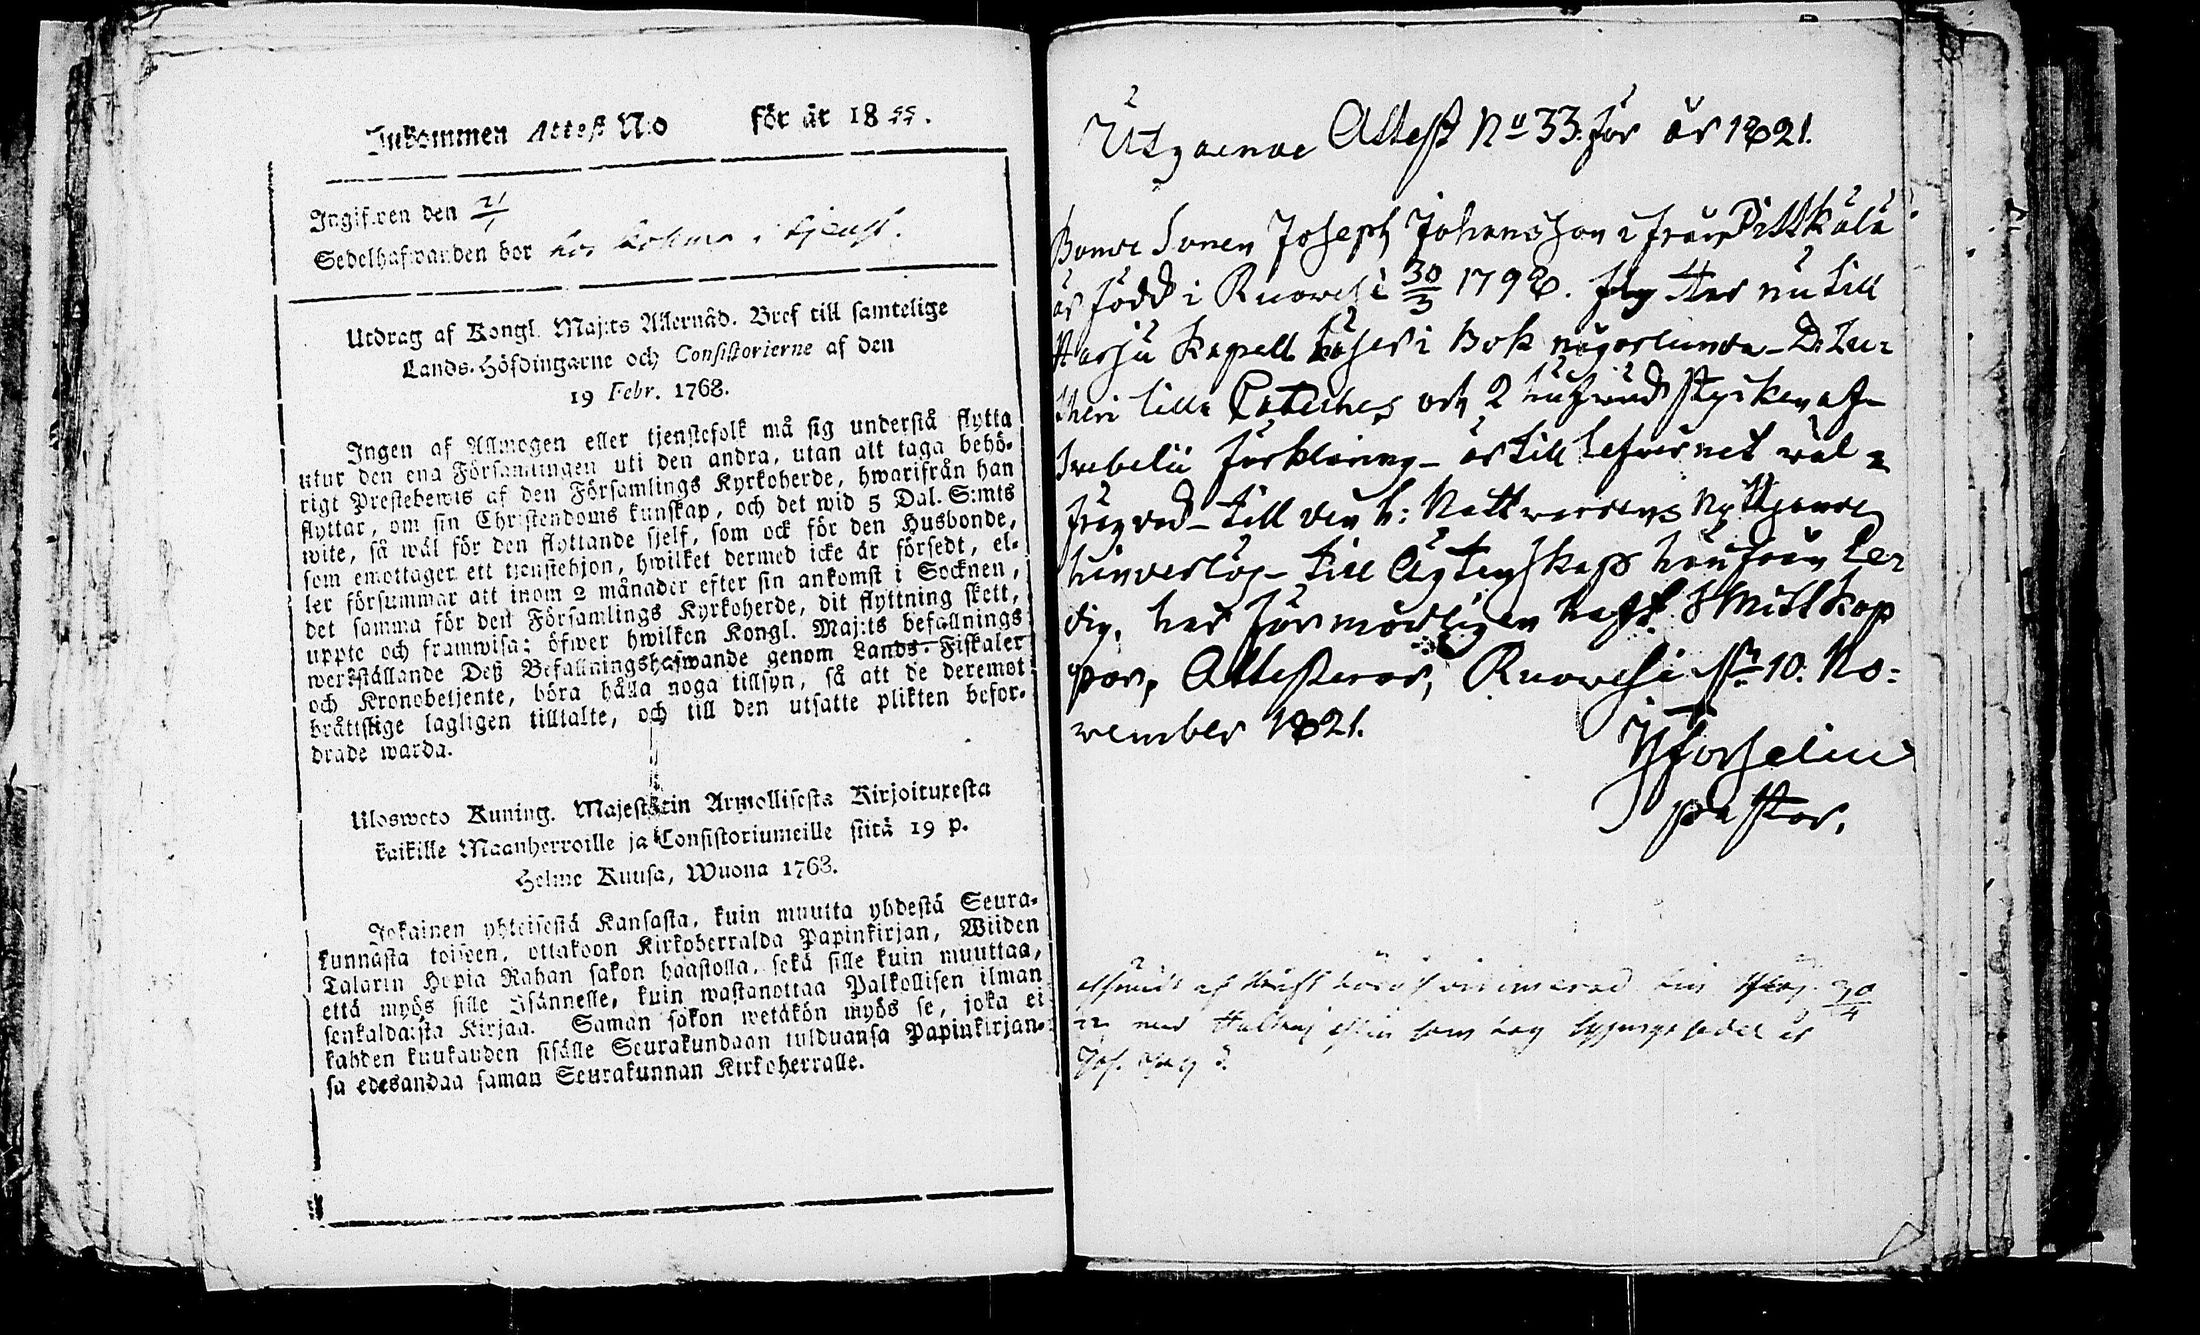 Inkommen Attest N:o för år 1822.
Ingifven den 21/1
Sedelhafwanden bor hos i tjenst.
Utdrag af Kongl. Maj:ts Allernåd. Bref till samtelige
Lands-Höfdingarne och Consistorierne af den
19 Febr. 1768.
Ingen af Allmogen eller tjenstefolk må sig understå flytta
utur den ena Församlingen uti den andra, utan att taga behö-
rigt Prestebewis af den Församlings Kyrkoherde, hwarifrån han
flyttar, om sin Christendoms kunskap, och det wid 5 Dal. S:mts
wite, så wäl för den flyttande sjelf, som ock för den Husbonde,
som emottager ett tjenstehjon, hwilket dermed icke är försedt, el-
ler försummar att inom 2 månader efter sin ankomst i Socknen,
det samma för den Församlings Kyrkoherde, dit flyttning skett,
uppte och framwisa; öfwer hwilken Kongl. Maj:ts befallnings
werkställande Deß Befallningshafwande genom Lands-Fiskaler
och Kronobetjente, böra hålla noga tillsyn, så att de deremot
bråttslige lagligen tilltalte, och till den utsatte plikten befor-
drade warda.
Ulosweto Kuning. Majestetin Armollisesta Kirjoituxesta
kaikille Maanherroille ja Consistoriumeille siitä 19 p.
Helme Kuusa, Wuona 1768.
Jokainen yhteisestä Kansasta, kuin muutta yhdestä Seura-
kunnasta toiseen, ottakoon Kirkoherralda Papinkirjan, Wiiden
Talarin Hopia Rahan sakon haastolla, sekä sille kuin muuttaa,
että myös sille Isännelle, kuin wastanottaa Palkollisen ilman
senkaldaista Kirjaa. Saman sakon wetäkön myös se, joka ei
kahden kuukauden sisälle Seurakundaan tulduansa Papinkirjan-
sa edesandaa saman Seurakunnan Kirkoherralle.
Utgående Attest No 33. för år 1821.
Bonde Sonen Joseph Johansson ifrån Pittkälä
är född i Ruovesi 30/3 1798. flyttar nu till
Harju Kapell läser i Bok någorlunda D. Lu-
theri lilla Cateches och 2 hufvud stycken af
Svebelii förklaring är till lefvernet wäl
frägdad till den h: Nattwardens Nyttjande
hinderlös till Ägtenskap härifrån Le-
dig, har förmodligen haft Mittkop
por, Attesterar, Ruovesi d. 10. No-
vember 1821.
H Forselius
pastor.
af 30/4
med som
Jos.